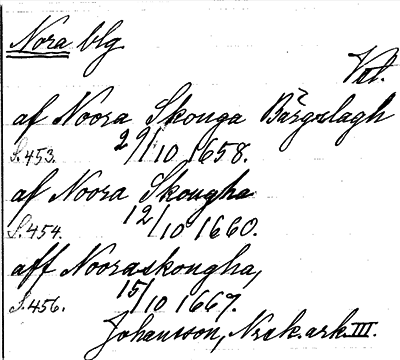 Nora blg
Vtl.
af Noora Skouga Bärgzlagh
S. 453. 29/10 1658.
af Noora Skougha
S. 454. 12/10 1660.
aff Nooraskougha,
S. 456. 15/10 1667.
Johansson, Norak. ark. III.